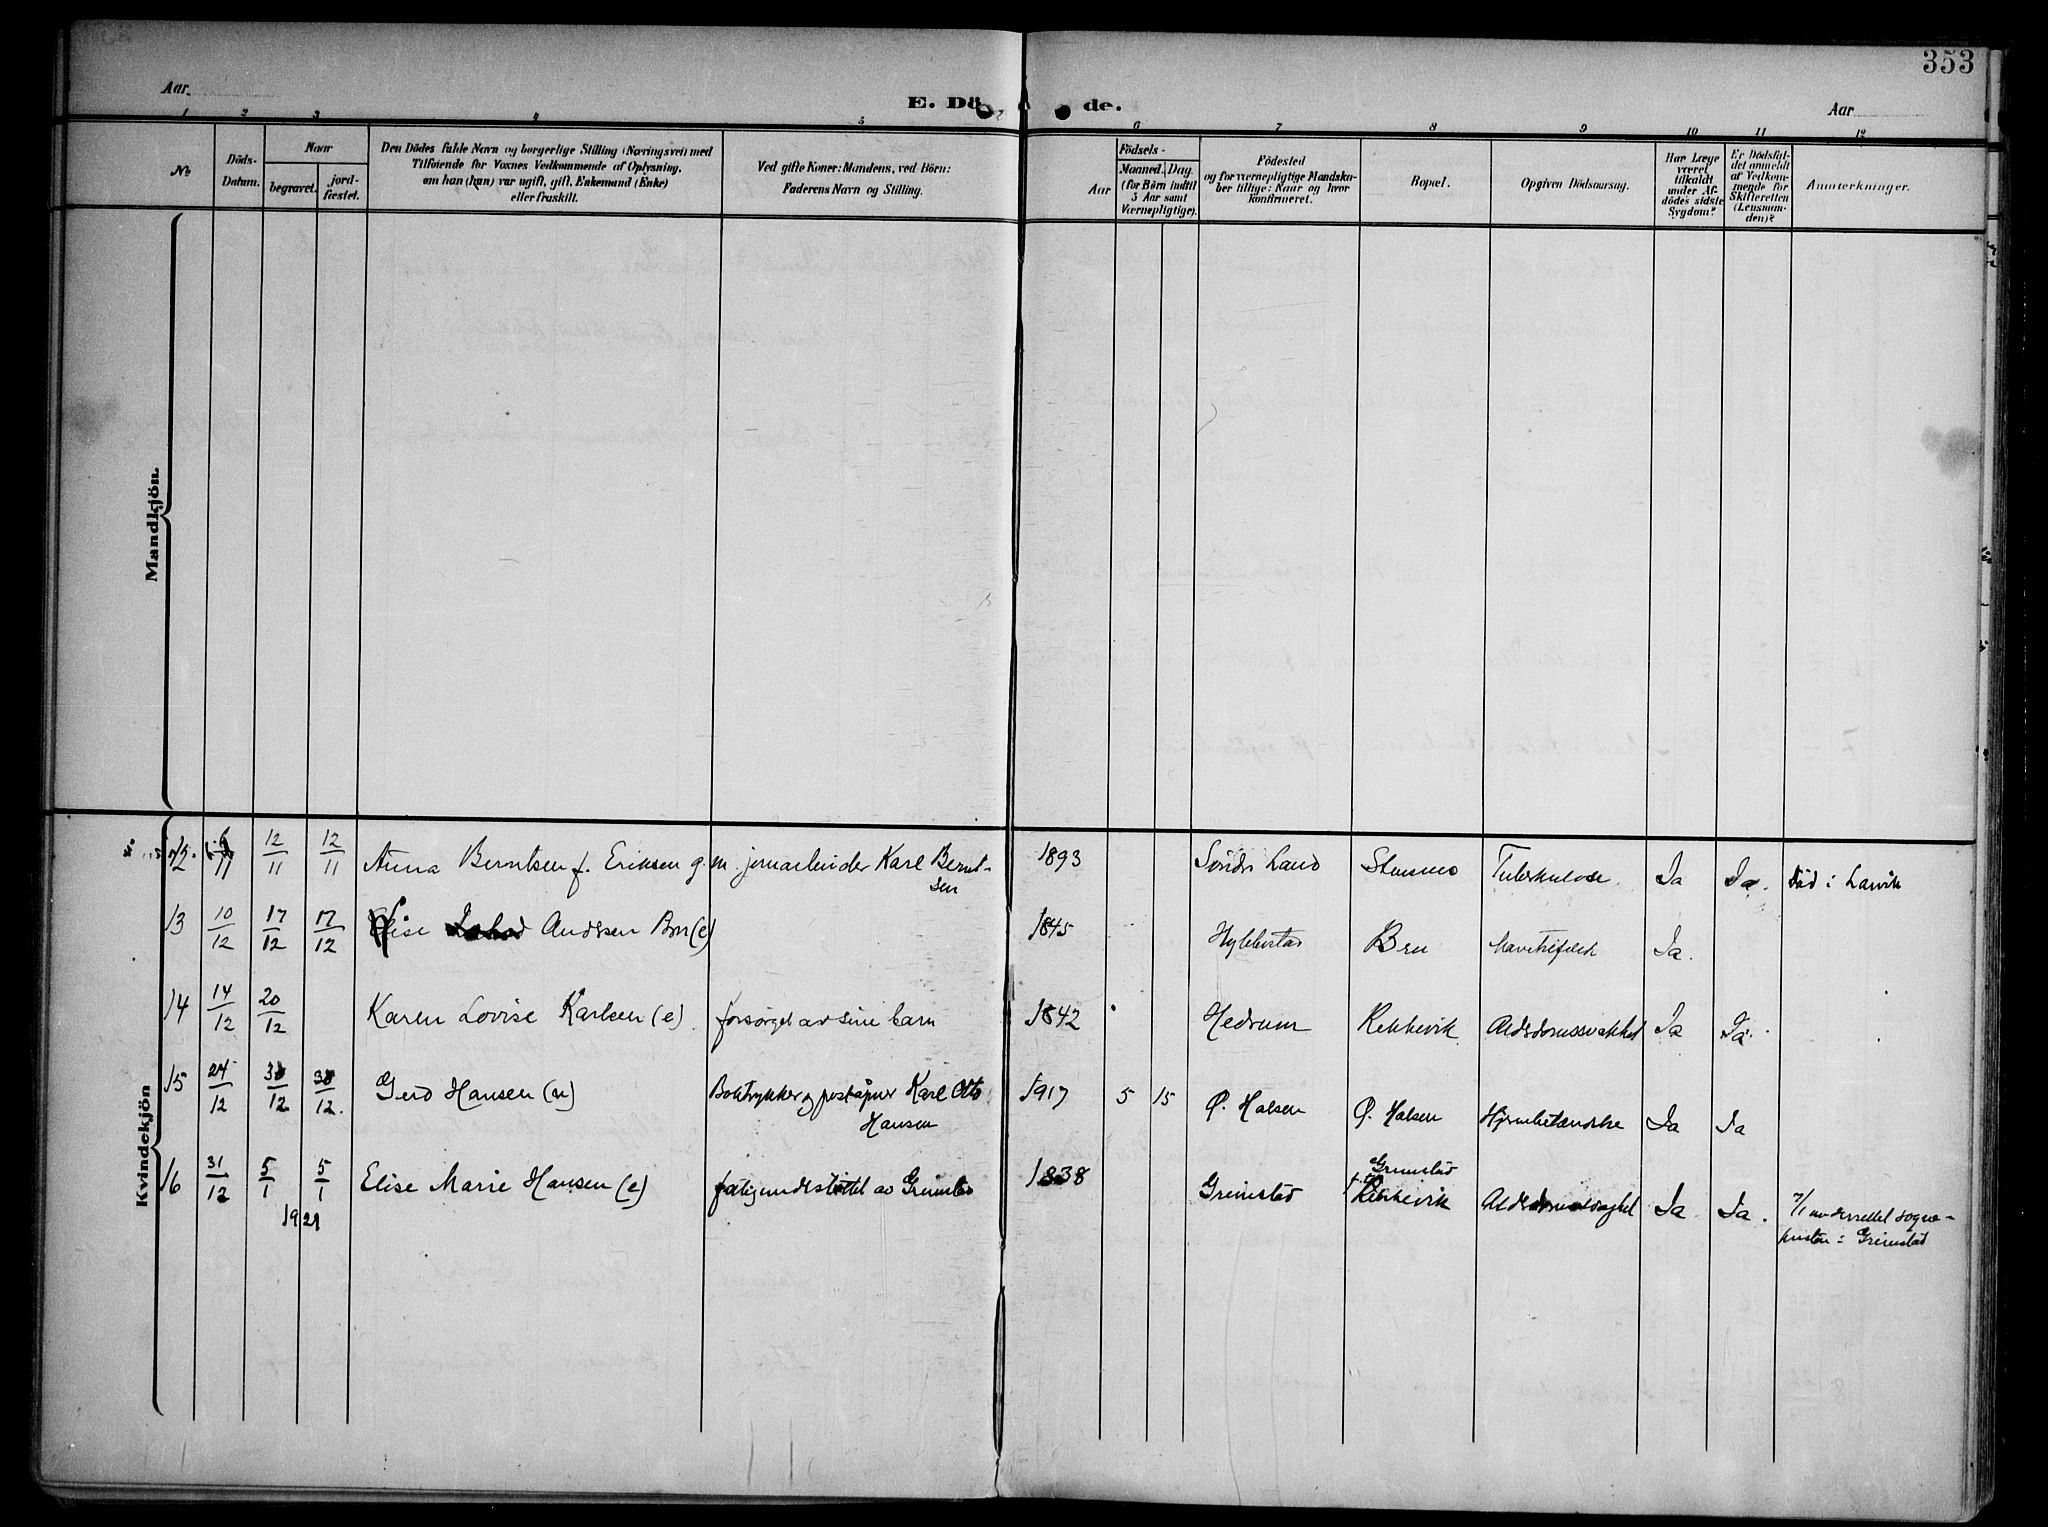 353
Aar
E. Dö de.
Aar
1 2 3 4 5 6 7 8 9 10 11 12
No
Döds-
Datum.
Naar
begravet.
jord-
fæstet.
Den Dödes fulde Navn og borgerlige Stilling (Næringsvei) med
Tilföiende for Voxnes Vedkommende af Oplysning,
om han (hun) var ugift, gift, Enkemand (Enke)
eller fraskilt.
Ved gifte Koner: Mandens, ved Börn:
Faderens Navn og Stilling.
Födsels-
Aar
Maaned. Dag.
(for Börn indtil
5 Aar samt
Værnepligtige).
Födested
og for værnepligtige Mandska-
ber tillige: Naar og hvor
konfirmeret.
Bopæl.
Opgiven Dödsaarsag.
Har Læge
været
tilkaldt
under Af-
dödes sidste
Sygdom?
Er Dödsfal-
det anmeldt
af Vedkom-
mende for
Skifteretten
(Lensman-
den)?
Anmerkninger.
Mandkjön.
Kvindekjön
12. 6/11 12/11 12/11 Anna Berntsen f. Eriksen g. m. jernarbeider Karl Bernt-
sen
1893 Söndre Land Stensmo Tuberkulose Ja Ja. död i Larvik
13 10/12 17/12 17/12 Elise Andersen Bru (e) 1845 Hybbestad Bru Ja.
14 14/12 20/12 Karen Lovise Karlsen (e) forsørget av sine barn 1842 Hedrum Rekkevik Alderdomssvakhet Ja Ja.
15 24/12 30/12 30/12. Gerd Hansen (u) Boktrykker og poståpner Karl Otto
Hansen
1917 5 15 Ø. Halsen Ø. Halsen Hjernebetændelse Ja Ja
16 31/12 5/1 5/1 Elise Marie Hansen (e) fatigunderstöttet av Grimstad 1838 Grimstad
Grimstad
Rekkevik Ja Ja.
1921
7/1 underrettet sogne-
presten i Grimstad